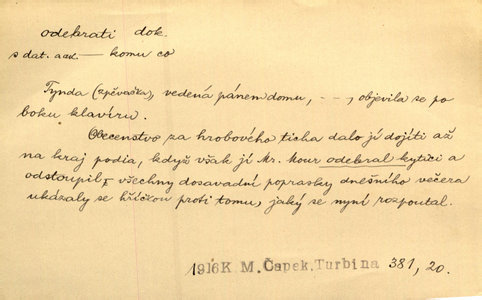 odebrati dok.
s dat. a ak. — komu co
Tynda (zpěvačka), vedená pánem domu, - - -, objevila se po
boku klavíru.
Obecenstvo za hrobového ticha dalo jí dojíti až
na kraj podia, když však jí Mr. Mour odebral kytici a
odstoupil, všechny dosavadní poprasky dnešního večera
ukázaly se hříčkou proti tomu, jaký se nyní rozpoutal.
1916 K. M. Čapek, Turbina 381, 20.